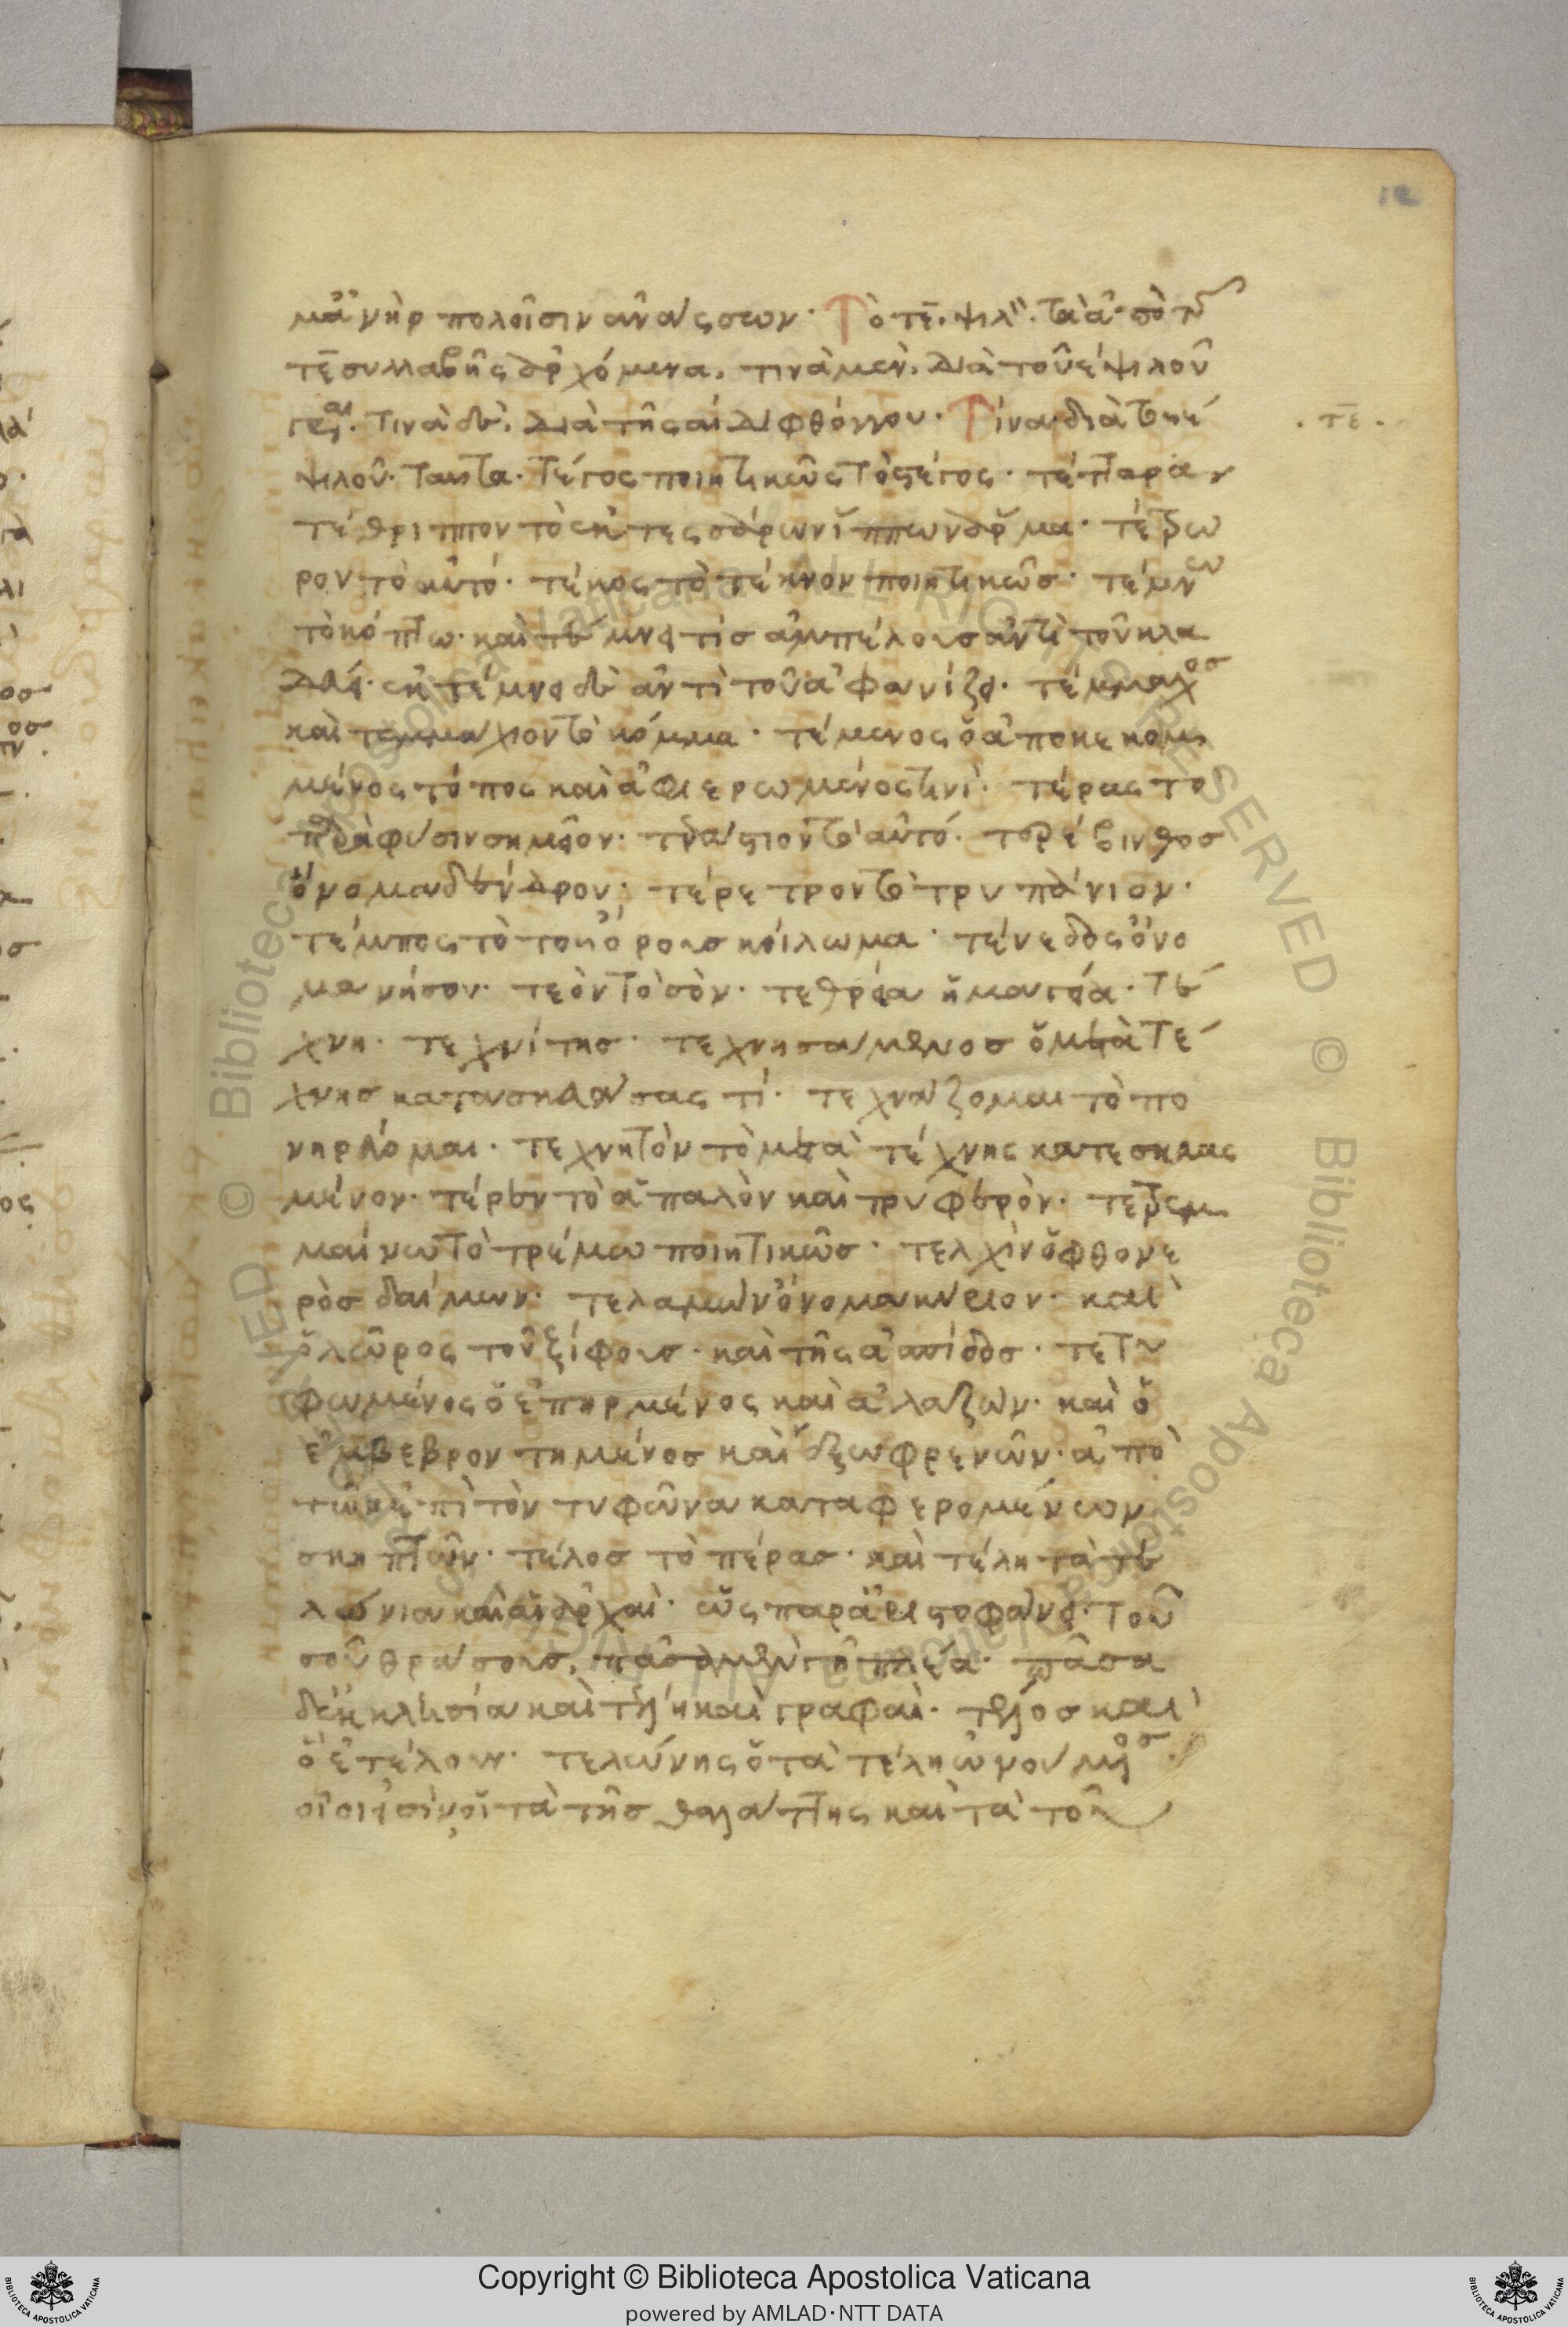 μἀνὴρ πολοῖσιν ἀνάσσων· Τὸ τε̄. ψιλ. τὰ ἀπὸ τῆς
τε̄ συλλαβῆς ἀρχόμενα, τινὰ μὲν, διὰ τοῦ ε ψιλοῦ
γρ. τινὰ δὲ, διὰ τῆς αι διφθόγγου· Τίνα διὰ τοῦ ε
ψιλοῦ· ταῦτα. τέγος ποιητικῶς τὸ στέγος· τέτταρα·
τέθριππον τὸ ἐκ τεσσάρων ἵππων ἅρμα· τέτρω
ρον τὸ αὐτό· τέκος τὸ τέκνον ποιητικῶς· τέμνω
τὸ κόπτω· καὶ τέμνει τὶς ἀμπέλους ἀντὶ τοῦ κλα
δεύει· ἐκτέμνει δὲ ἀντὶ τοῦ ἀφανίζει· τέμμαχος
καὶ τεμμάχιον τὸ κόμμα· τέμενος ὁ ἀποκεκομ
μένος τόπος καὶ ἀφιερωμένος τινὶ· τέρας τὸ
παρὰ φύσιν σημεῖον· τεράστιον τὸ αὐτό· τερέβινθος
ὄνομα δένδρου· τέρετρον τὸ τρυπάνιον·
τέμπος τὸ τοῦ ὄρους κοίλωμα· τένεδος ὄνο
μα νήσου· τεὸν τὸ σὸν· τεθρεία ἡ μαγεία· τέ
χνη· τεχνίτης· τεχνησάμενος ὁ μετὰ τέ
χνης κατασκευάσας τί· τεχνάζομαι τὸ πο
νηρεύομαι· τεχνητὸν τὸ μετὰ τέχνης κατεσκευας
μένον· τέρεν τὸ ἁπαλὸν καὶ τρυφερὸν· τετρεμ
μαίνω τὸ τρέμω ποιητικῶς· τελχὶν ὁ φθονε
ρὸς δαίμων· τελαμὼν ὄνομα κύριον· καὶ
ὁ λῶρος τοῦ ξίφους· καὶ τῆς ἀσπίδος· τετυ
φωμένος ὁ ἐπηρμένος καὶ ἀλαζὼν· καὶ ὁ
ἐμβεβροντημένος καὶ ἔξω φρενῶν· ἀπὸ
τῶν ἐπὶ τὸν τυφῶνα καταφερομένων
σκηπτῶν· τέλος τὸ πέρας· καὶ τέλη τὰ τε
λώνια καὶ αἱ ἀρχαὶ· ὡς παρὰ ἀριστοφάνει· τοῦ
σοῦ θράσους, πᾶσα μὲν γῆ πλέα· πᾶσα
δ' ἐκκλησία καὶ τέλη καὶ γραφαὶ· τέλος καὶ
ὁ ἐτέλουν· τελώνης ὁ τὰ τέλη ὠνούμενος·
οἷοι εἰσὶν οἱ τὰ τῆς θαλάττης καὶ τὰ τοῦ
· τε̄ ·